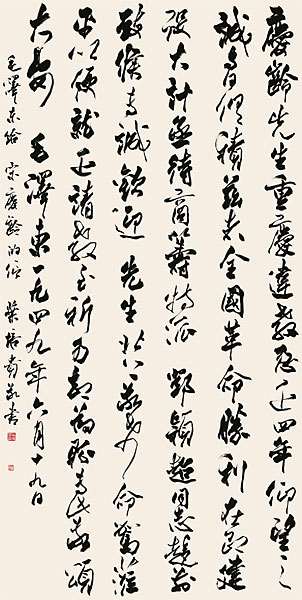 慶齡先生重慶違教忽近四年仰望之
誠與日俱積茲者全國革命勝利在即建
設大計亟待商籌特派 鄧穎超同志趨前
致候專誠歡迎 先生北上敬希命駕蒞
平以便就近請教至祈勿卻為盼專此敬頌
大安 毛澤東一九四九年六月十九日
毛澤東給宋慶齡的信 葉培貴敬書